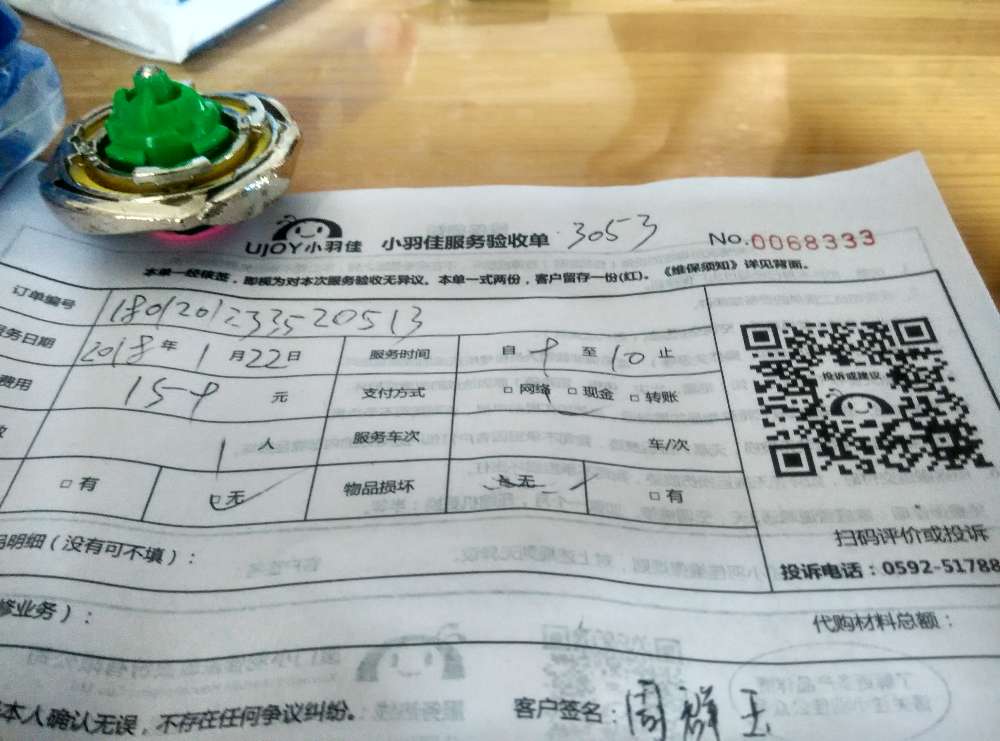 UJOY小羽佳 小羽佳服务验收单 3053 No.0068333
本单一经核签，即视为对本次服务验收无异议。本单一式两份，客户留存一份(红)。《维保须知》详见背面。
订单编号 180120123352051 3
务日期 2018年 1月22日 服务时间 自 9 至 10 止
费用 159 元 支付方式 □网络 □现金 □转账
1 人 服务车次 车/次
□有 □无 物品损坏 □无 □有
投诉或建议
明细（没有可不填）：
扫码评价或投诉
投诉电话：0592-51788
修业务）：
代购材料总额：
本人确认无误，不存在任何争议纠纷。 客户签名：周群玉